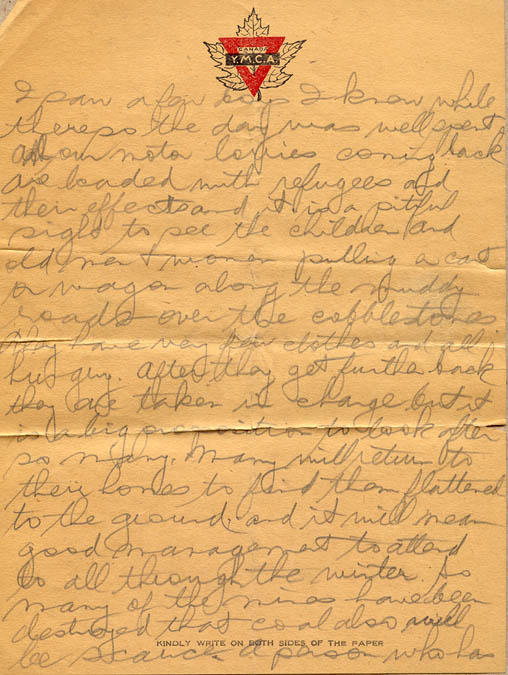 CANADA
Y.M.C.A.
I saw a few boys I know while
there so the day was well spent
All our motor lorries coming back
are loaded with refugees and
their effects and it is a pitiful
sight to see the children and
old men & women pulling a cart
or wagon along the muddy
roads over the cobblestones
They have very few clothes and all
hungry. After they get further back
they are taken in charge but it
is a big proposition to look after
so many. Many will return to
their homes to find them flattened
to the ground. and it will mean
good management to attend
to all through the winter. So
many of the mines have been
destroyed that coal also will
KINDLY WRITE ON BOTH SIDES OF THE PAPER
be scarce. A person who has